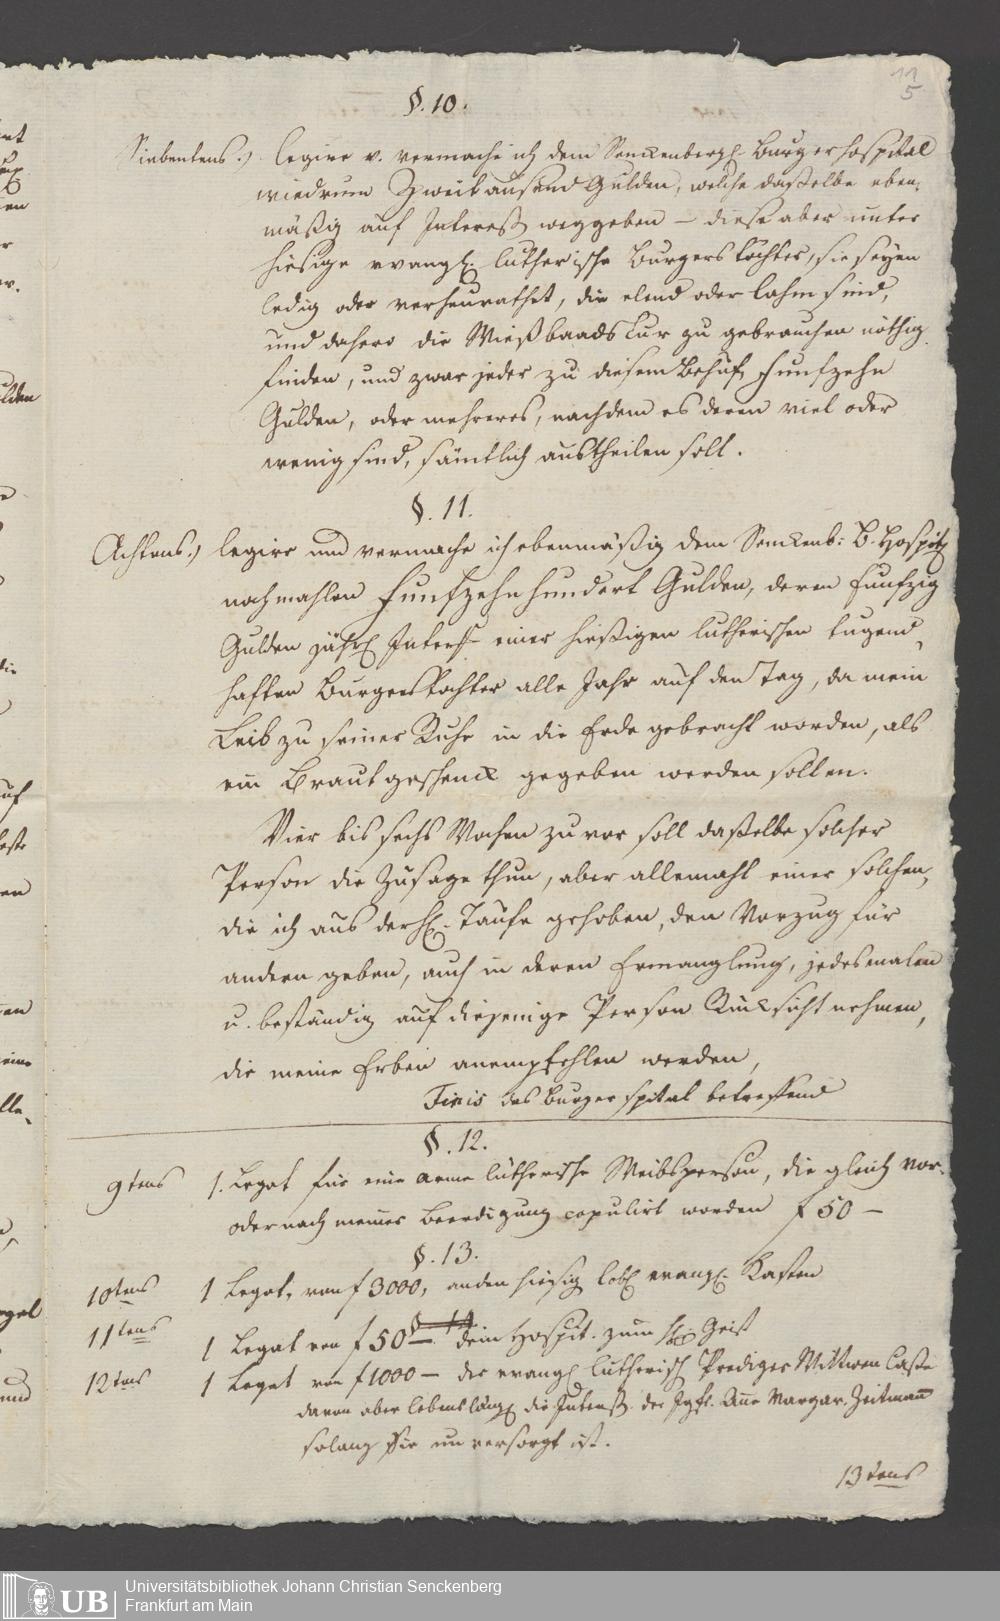 11
5
§. 10.
Siebentens.) legire v. vermache ich dem Senckenbergl. Burgerhospital
wiedrum Zweitausend Gulden, welche daßelbe eben,
mäßig auf Interesse weggeben – diese aber unter
hiesige evangl. lutherische Burgers töchter, sie seyen
ledig oder verheurathet, die elend oder lahm sind,
und dahero die Wießbaads Cur zu gebrauchen nöthig
finden, und zwar jeder zu diesem Behuf funfzehn
Gulden, oder mehreres, nachdem es deren viel oder
wenig sind, sämtlich austheilen soll.
§. 11.
Achtens.) legire und vermache ich ebenmäßig dem Senckenb: B. Hospitl
nochmahlen Funfzehnhundert Gulden, deren funfzig
Gulden jährl Interesse einer hießigen lutherischen tugend,
haften Burgers tochter alle Jahr auf den Tag, da mein
Leib zu seiner Ruhe in die Erde gebracht worden, als
ein Brautgeschenck gegeben werden sollen.
Vier bis sechs Wochen zuvor soll daßelbe solcher
Person die Zusage thun, aber allemahl einer solchen,
die ich aus der hl. Taufe gehoben, den Vorzug für
andern geben, auch in deren Ermanglung, jedesmalen
u. beständig auf diejenige Person Rücksicht nehmen,
die meine Erben anempfehlen werden,
Finis das Burger spital betreffend
§. 12.
9tens 1. Legat für eine arme lutherische Weibsperson, die gleich vor-
oder nach meiner Beerdigung copulirt worden f 50 –
§. 13.
10tens 1 Legat, von f 3000, an den hiesig lobl evangl. Kasten
§ 14
11tens 1 Legat von f 50 – dem Hospit. zum hl. Geist
12tens 1 Legat von f 1000 – der evangl lutherisch Prediger Wittwen Casse
davon aber lebenslängl die Interesse der Jgfr. Anna Margar. Zeitmann
solang Sie unversorgt ist.
13tens
UB Universitätsbibliothek Johann Christian Senckenberg
Frankfurt am Main